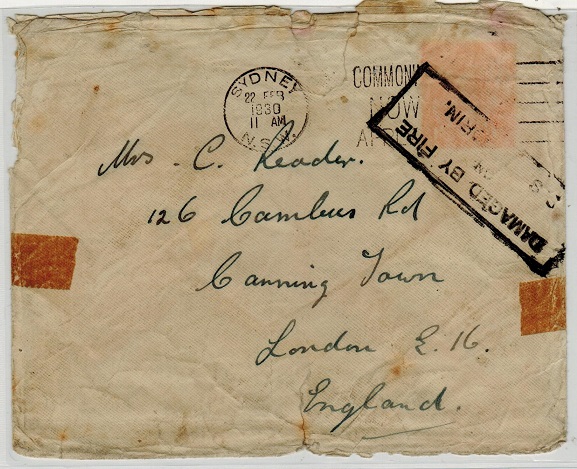 SYDNEY
22 FEB
1930
11 AM
N.S.W.
COMMONW
NOW
DAMAGED BY FIRE
ON
Mrs. C. Reader.
126 Cambus Rd
Canning Town
London E. 16.
England.